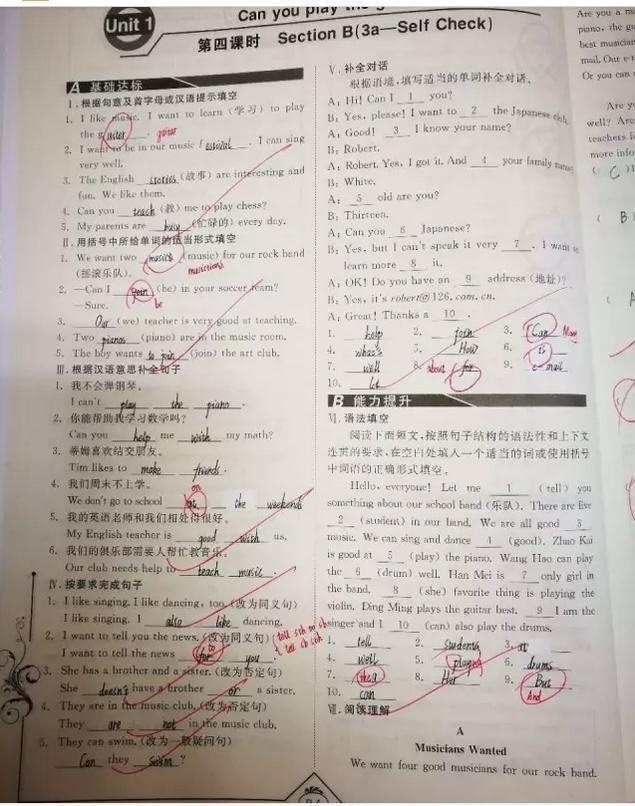 Unit 1
Can you play the g
第四课时 Section B(3a—Self Check)
A 基础达标
Ⅰ.根据句意及首字母或汉语提示填空
1. I like music. I want to learn (学习) to play
the guiter. guitar
2. I want to be in our music festival. I can sing
very well.
3. The English stories (故事) are interesting and
fun. We like them.
4. Can you teach (教) me to play chess?
5. My parents are busy (忙碌的) every day.
Ⅱ.用括号中所给单词的适当形式填空
1. We want two musics (music) for our rock band
(摇滚乐队). musicians
2. —Can I join (be) in your soccer team?
be
—Sure.
3. Our (we) teacher is very good at teaching.
4. Two pianos (piano) are in the music room.
5. The boy wants to join (join) the art club.
Ⅲ.根据汉语意思补全句子
1. 我不会弹钢琴。
I can't play the piano.
2. 你能帮助我学习数学吗?
Can you help me with my math?
3. 蒂姆喜欢结交朋友。
Tim likes to make friends.
4. 我们周末不上学。
on
We don't go to school the weekends
5. 我的英语老师和我们相处得很好。
My English teacher is good with us.
6. 我们的俱乐部需要人帮忙教音乐。
Our club needs help to teach music.
Ⅳ.按要求完成句子
1. I like singing. I like dancing, too. (改为同义句)
I like singing. I also like dancing.
2. I want to tell you the news. (改为同义句)
I want to tell the news for you.
to
tell sth to sb
tell sb sth
3. She has a brother and a sister. (改为否定句)
She doesn't have a brother or a sister.
4. They are in the music club. (改为否定句)
They are not in the music club.
5. They can swim. (改为一般疑问句)
Can they swim?
Ⅴ.补全对话
根据语境,填写适当的单词补全对话。
A: Hi! Can I 1 you?
B: Yes, please! I want to 2 the Japanese club.
A: Good! 3 I know your name?
B: Robert.
A: Robert. Yes, I got it. And 4 your family name?
B: White.
A: 5 old are you?
B: Thirteen.
A: Can you 6 Japanese?
B: Yes, but I can't speak it very 7. I want to
learn more 8 it.
A: OK! Do you have an 9 address (地址)?
B: Yes, it's robert@126.com.cn.
A: Great! Thanks a 10.
1. help 2. join 3. Can May
4. what's 5. How 6. is
7. well 8. about for 9. e-mail
10. lot
B 能力提升
Ⅵ.语法填空
阅读下面短文,按照句子结构的语法性和上下文
连贯的要求,在空白处填入一个适当的词或使用括号
中词语的正确形式填空。
Hello, everyone! Let me 1 (tell) you
something about our school band (乐队). There are five
2 (student) in our band. We are all good 3
music. We can sing and dance 4 (good). Zhao Kai
is good at 5 (play) the piano. Wang Hao can play
the 6 (drum) well. Han Mei is 7 only girl in
the band. 8 (she) favorite thing is playing the
violin. Ding Ming plays the guitar best. 9 I am the
singer and I 10 (can) also play the drums.
1. tell 2. students 3. at
4. well 5. playing 6. drums
7. the 8. Her 9. But
10. can And
Ⅶ.阅读理解
A
Musicians Wanted
We want four good musicians for our rock band.
Are you a m
piano, the gu
best musician
mail. Our e-
Or you can
Are y
well? Are
teachers
more info
( C )
( B